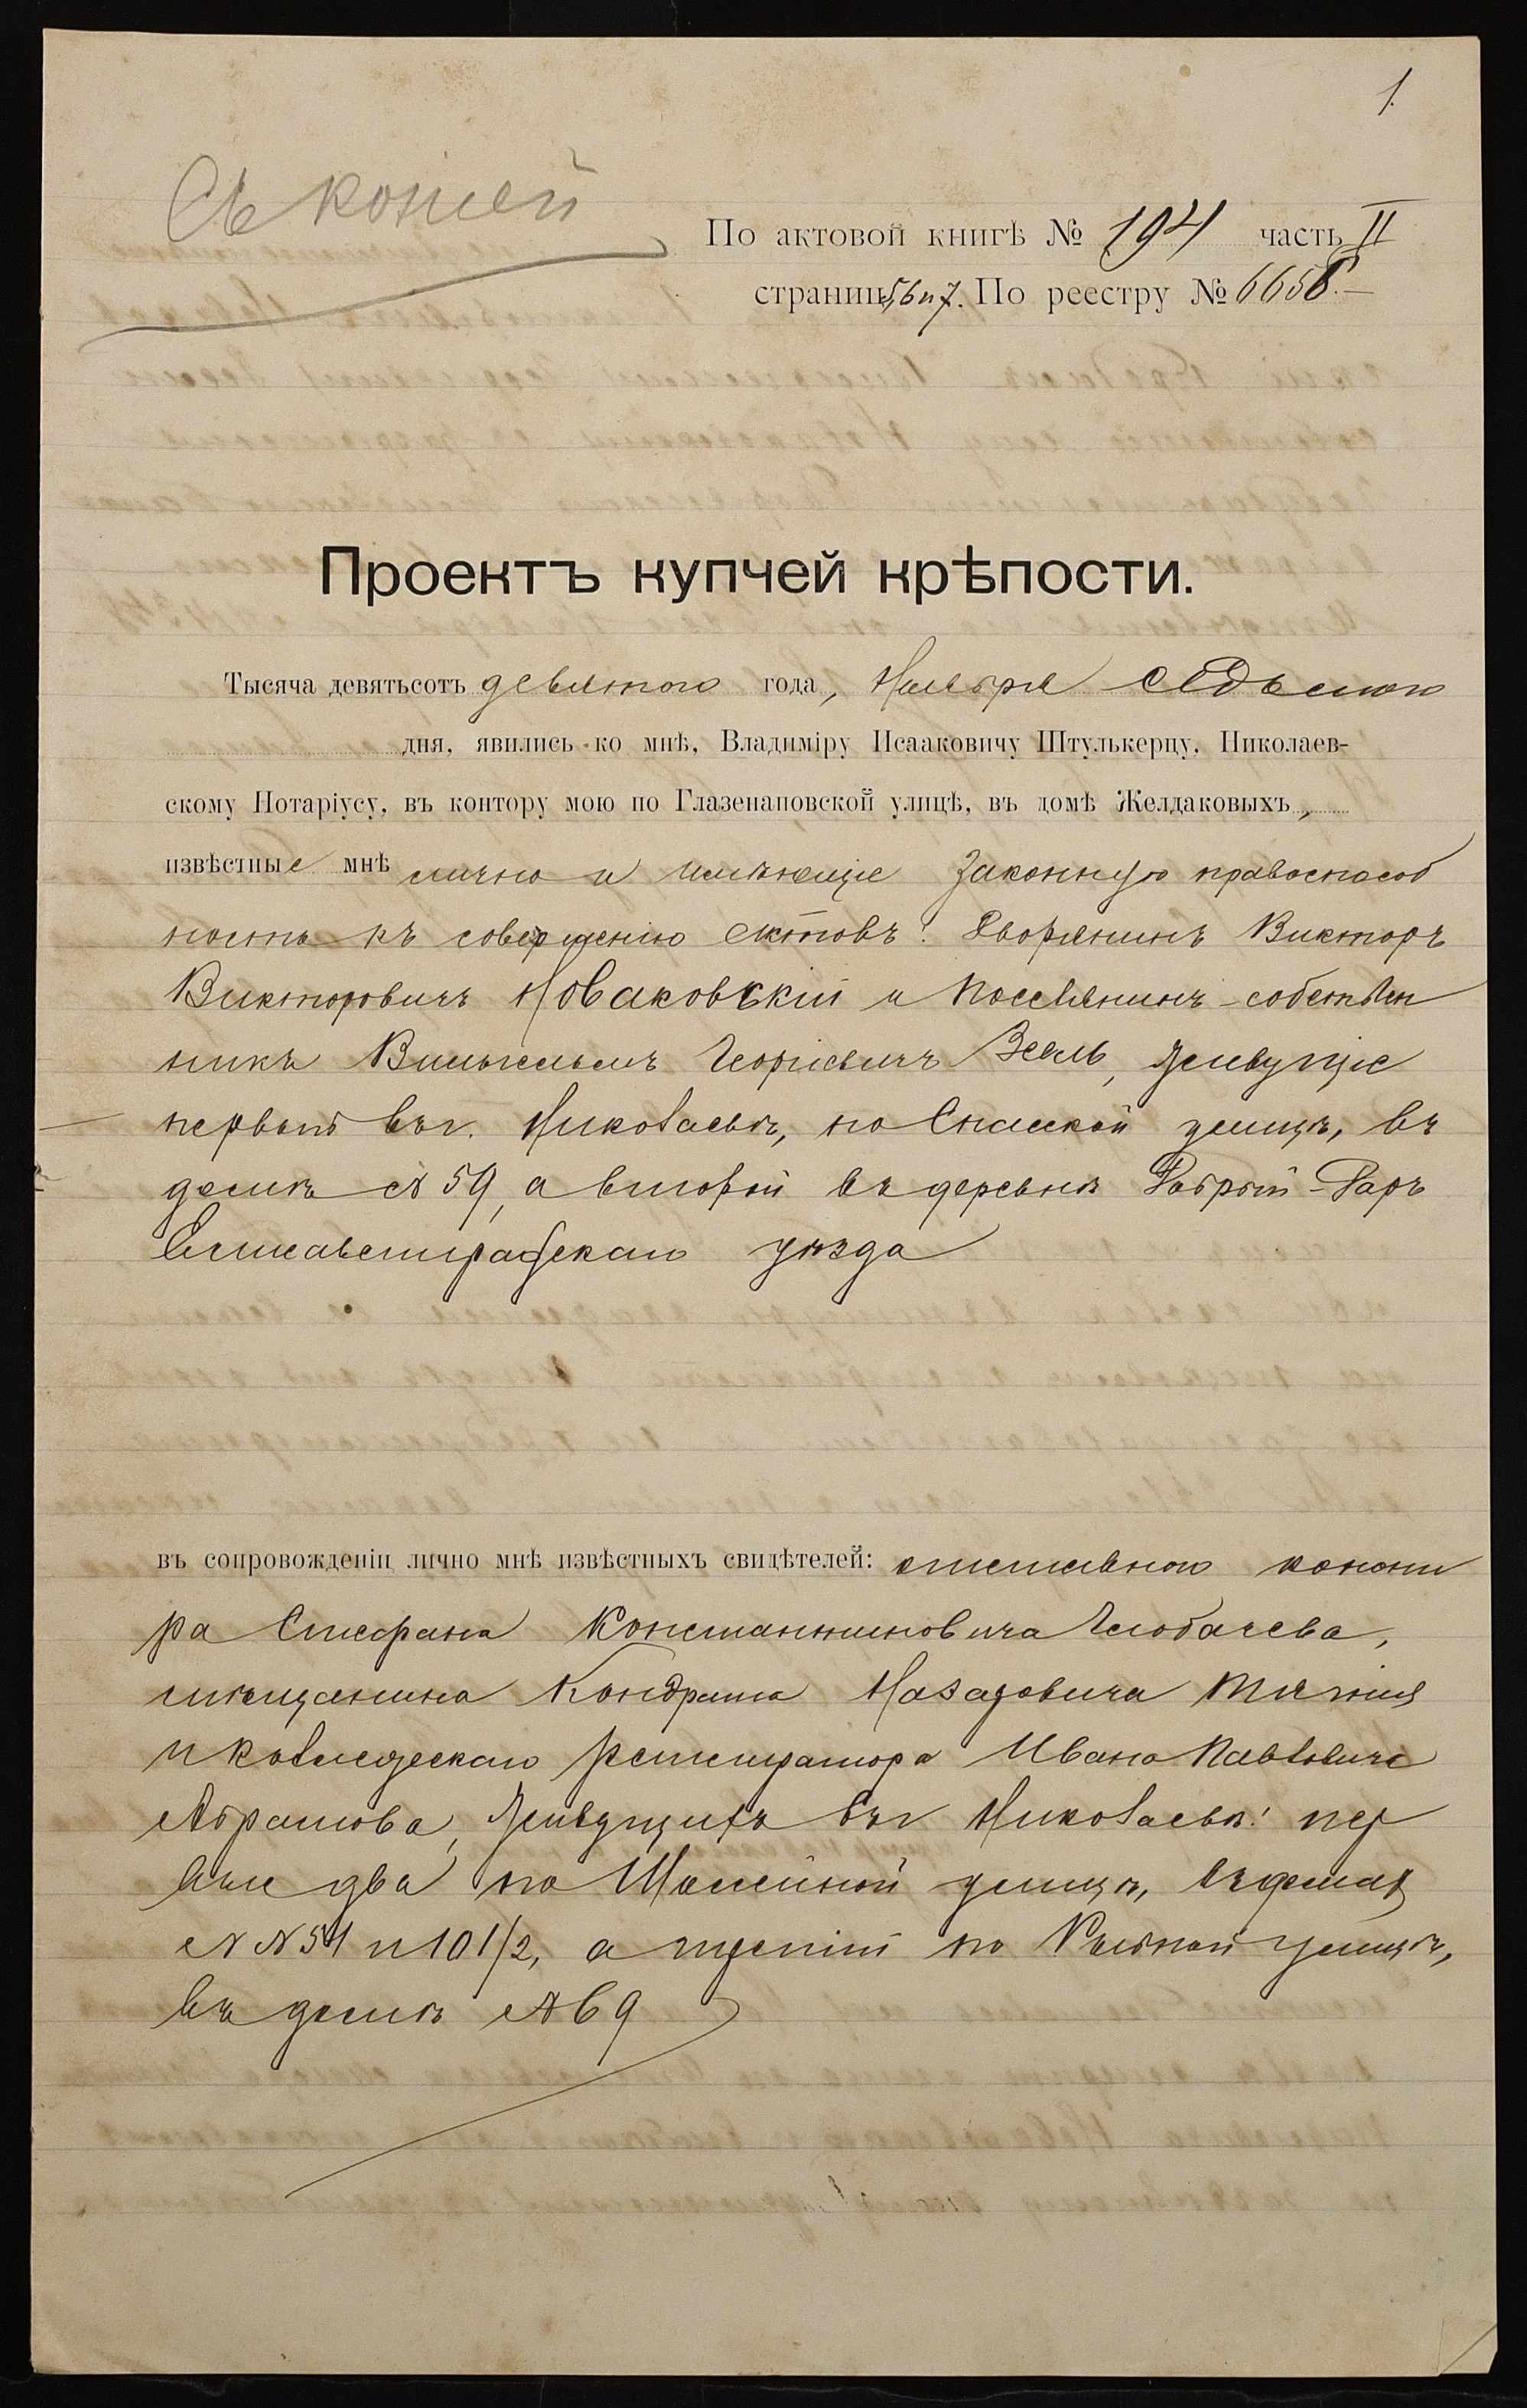 1.
Съ копіей
По актовой книгѣ № 194 часть II
страниц 5,6 и 7. По реестру № 6658.—
Проектъ купчей крѣпости.
Тысяча девятьсотъ девятого года, Ноября седьмого
дня, явились ко мнѣ, Владиміру Исааковичу Штулькерцу, Николаев-
скому Нотаріусу, въ контору мою по Глазенаповской улицѣ, въ домѣ Желдаковыхъ,
извѣстные мнѣ лично и имѣющіе законную правоспособ
ность къ совершенію актовъ: Дворянинъ Викторъ
Викторовичъ Новаковскій и Поселянинъ-собствен
никъ Вильгельмъ Георгіевичъ Зеель, живущіе
первый въ г. Николаевѣ, по Спасской улицѣ, въ
домѣ № 59, а второй въ деревнѣ Добрый-Даръ
Елисаветградскаго уѣзда
въ сопровожденіи лично мнѣ извѣстныхъ свидѣтелей: отставного канони
ра Стефана Константиновича
мѣщанина Кондрата Назаровича
и коллежскаго регистратора Ивана Павловича
Абрамова, живущихъ въ г. Николаевѣ: пер
вые два по Шоссейной улицѣ, въ домахъ
№№ 51 и 101/2, а третій по улицѣ,
въ домѣ № 69